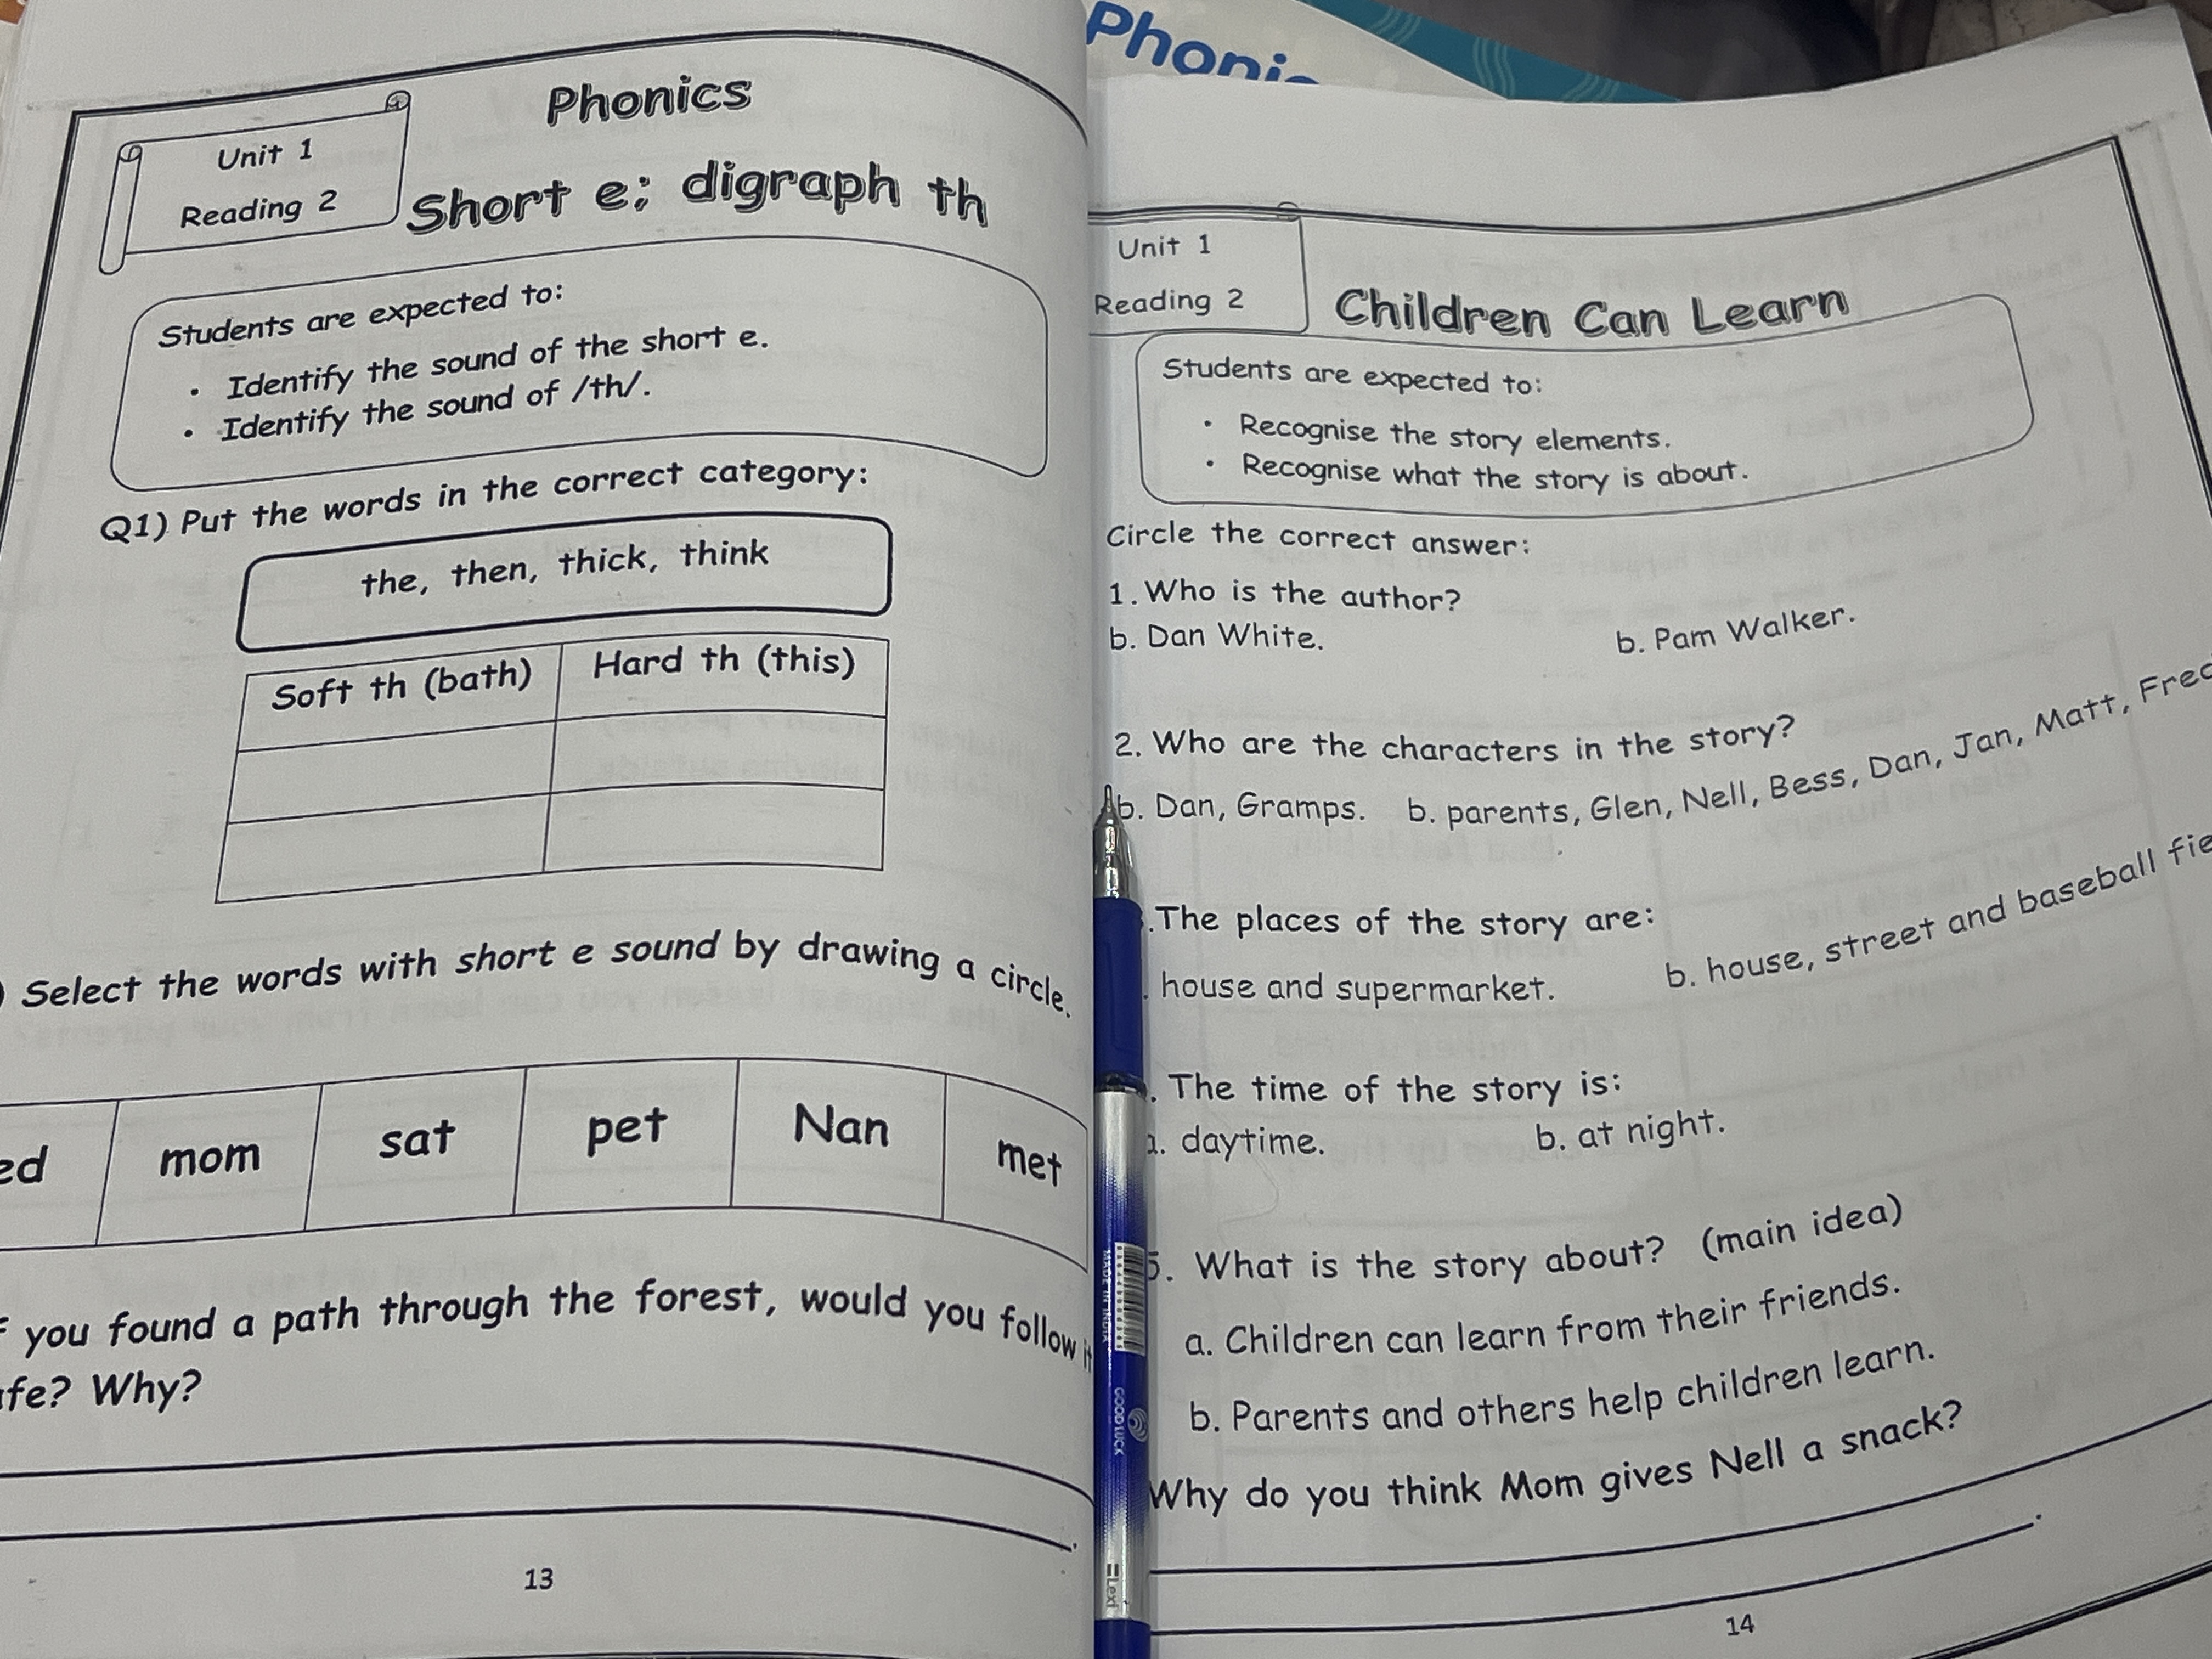 Phonics
Unit 1
Reading 2
Short e; digraph th
Students are expected to:
• Identify the sound of the short e.
• Identify the sound of /th/.
Q1) Put the words in the correct category:
the, then, thick, think
Soft th (bath) Hard th (this)
) Select the words with short e sound by drawing a circle.
ed mom sat pet Nan met
you found a path through the forest, would you follow
fe? Why?
13
Phoni
Unit 1
Reading 2
Children Can Learn
Students are expected to:
• Recognise the story elements.
• Recognise what the story is about.
Circle the correct answer:
1. Who is the author?
b. Dan White. b. Pam Walker.
2. Who are the characters in the story?
b. Dan, Gramps. b. parents, Glen, Nell, Bess, Dan, Jan, Matt, Fred
.The places of the story are:
. house and supermarket. b. house, street and baseball fie
. The time of the story is:
a. daytime. b. at night.
5. What is the story about? (main idea)
a. Children can learn from their friends.
b. Parents and others help children learn.
Why do you think Mom gives Nell a snack?
14
MADE IN INDIA
GOOD LUCK
Lexi